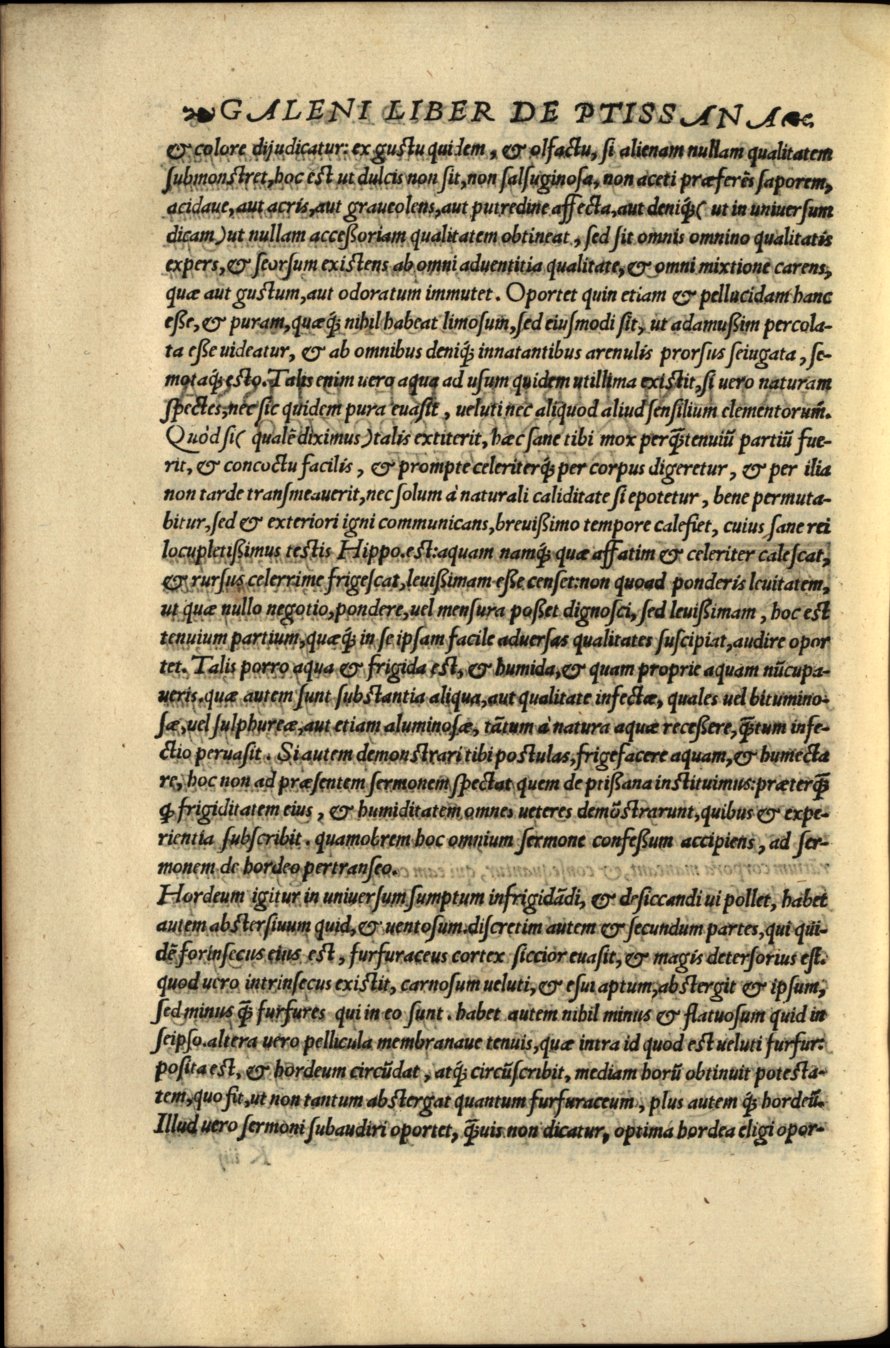 GALENI LIBER DE PTISSANA
& colore dijudicatur: ex gustu quidem, & olfactu, si alienam nullam qualitatem
submonstret, hoc est ut dulcis non sit, non salsuginosa, non aceti præferẽs saporem,
acidave, aut acris, aut graveolens, aut putredine affecta, aut deniq́; ( ut in universum
dicam) ut nullam acceßoriam qualitatem obtineat, sed sit omnis omnino qualitatis
expers, & seorsum existens ab omni adventitia qualitate, & omni mixtione carens,
quæ aut gustum, aut odoratum immutet. Oportet quin etiam & pellucidam hanc
eße, & puram, quæq́; nihil habeat limosum, sed eiusmodi sit, ut adamußim percola-
ta eße uideatur, & ab omnibus deniq́; innatantibus arenulis prorsus seiugata, se-
motaq́; esto. Talis enim uero aqua ad usum quidem utillima existit, si uero naturam
spectes, nec sic quidem pura euasit, ueluti nec aliquod aliud sensilium elementorum̃.
Quòd si ( qualẽ diximus) talis extiterit, hæc sane tibi mox perq̃ tenuiũ partiũ fue-
rit, & concoctu facilis, & prompte celeriterq́; per corpus digeretur, & per ilia
non tarde transmeaverit, nec solum à naturali caliditate si epotetur, bene permuta-
bitur, sed & exteriori igni communicans, breuißimo tempore calefiet, cuius sane rei
locupletißimus testis Hippo. est: aquam namq́; quæ affatim & celeriter calescat,
& rursus celerrime frigescat, leuißimam eße censet: non quoad ponderis leuitatem,
ut quæ nullo negotio, pondere, uel mensura poßet dignosci, sed leuißimam, hoc est
tenuium partium, quæq́; in se ipsam facile adversas qualitates suscipiat, audire opor
tet. Talis porro aqua & frigida est, & humida, & quam proprie aquam nũcupa-
ueris. quæ autem sunt substantia aliqua, aut qualitate infectæ, quales uel bitumino-
sæ, uel sulphureæ, aut etiam aluminosæ, tãtum à natura aquæ receßere, q̃tum infe-
ctio peruasit. Si autem demonstrari tibi postulas, frigefacere aquam, & humecta
re, hoc non ad præsentem sermonem spectat quem de ptißana instituimus: præterq̃
q̃ frigiditatem eius, & humiditatem omnes ueteres demõstrarunt, quibus & expe-
rientia subscribit. quamobrem hoc omnium sermone confeßum accipiens, ad ser-
monem de hordeo pertranseo.
Hordeum igitur in universum sumptum infrigidãdi, & desiccandi ui pollet, habet
autem abstersiuum quid, & uentosum. discretim autem & secundum partes, qui qui-
dẽ forinsecus eius est, furfuraceus cortex siccior euasit, & magis detersorius est.
quod uero intrinsecus existit, carnosum ueluti, & esui aptum, abstergit & ipsum,
sed minus q̃ furfures qui in eo sunt. habet autem nihil minus & flatuosum quid in
seipso. altera uero pellicula membranaue tenuis, quæ intra id quod est ueluti furfur:
posita est, & hordeum circũdat, atq́; circũscribit, mediam horũ obtinuit potesta-
tem, quo fit, ut non tantum abstergat quantum furfuraceum, plus autem q̃ hordeũ.
Illud uero sermoni subaudiri oportet, q̃uis non dicatur, optima hordea eligi opor-